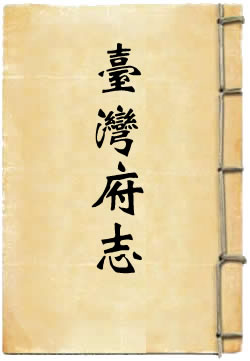 臺灣府志